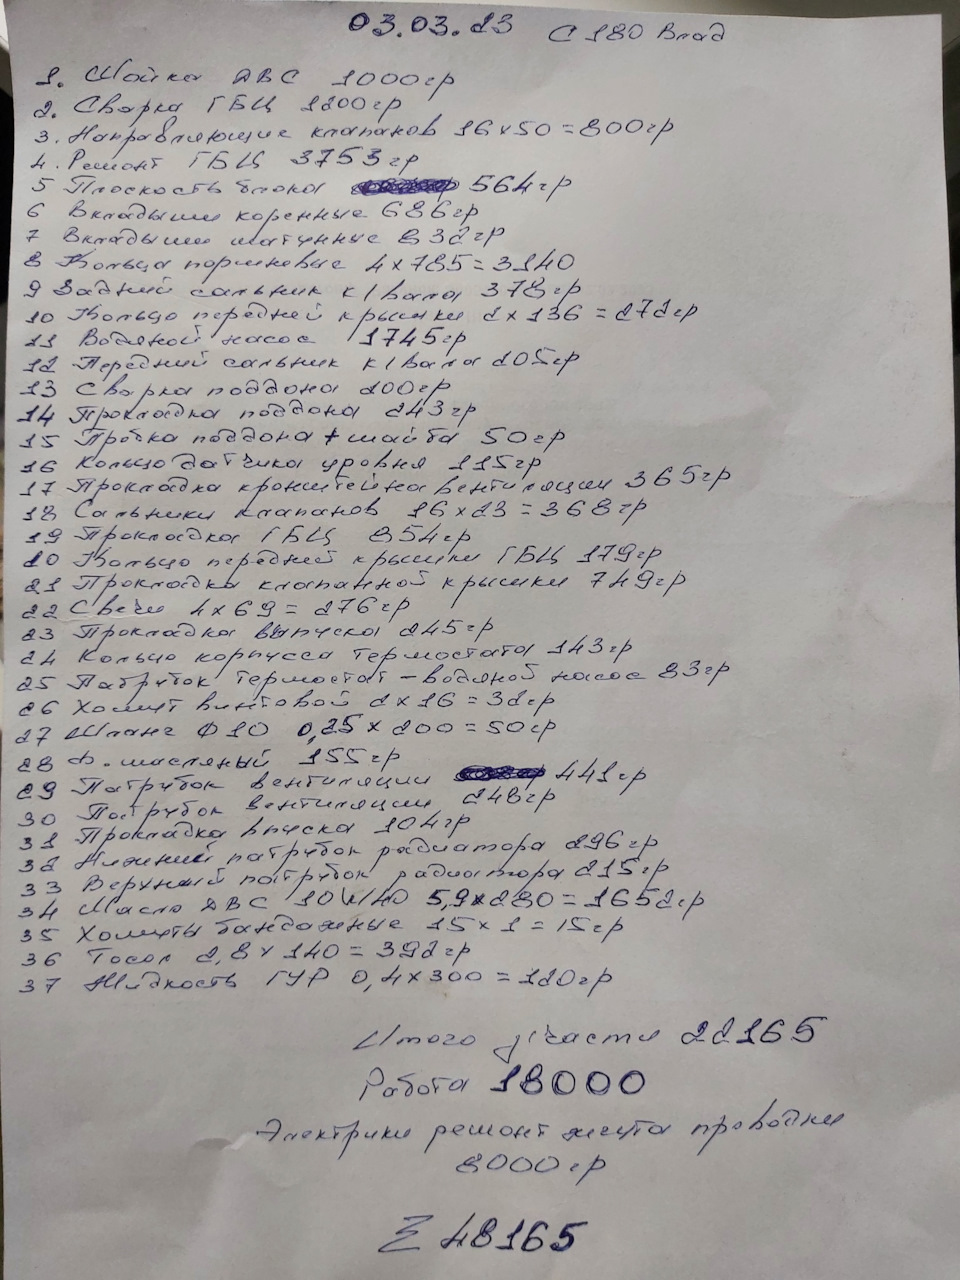 03.03.23 С180 Влад
1. Мойка ДВС 1000гр
2. Сварка ГБЦ 1200гр
3. Направляющие клапанов 16х50=800гр
4. Ремонт ГБЦ 3753гр
5 Плоскость блока 564гр
6 Вкладыши коренные 686гр
7 Вкладыши шатунные 832гр
8 Кольца поршневые 4х785=3140
9 Задний сальник к/вала 378гр
10 Кольцо передней крышки 2х136=272гр
11 Водяной насос 1745гр
12 Передний сальник к/вала 205гр
13 Сварка поддона 200гр
14 Прокладка поддона 243гр
15 Пробка поддона + шайба 50гр
16 Кольцо датчика уровня 115гр
17 Прокладка кронштейна вентиляции 365гр
18 Сальники клапанов 16х23=368гр
19 Прокладка ГБЦ 854гр
20 Кольцо передней крышки ГБЦ 179гр
21 Прокладка клапанной крышки 749гр
22 Свечи 4х69=276гр
23 Прокладка выпуска 245гр
24 Кольцо корпусса термостата 143гр
25 Патрубок термостат-водяной насос 83гр
26 Хомут винтовой 2х16=32гр
27 Шланг Ф10 0,25х200=50гр
28 Ф. масляный 155гр
29 Патрубок вентиляции 441гр
30 Патрубок вентиляции 248гр
31 Прокладка впуска 104гр
32 Нижний патрубок радиатора 296гр
33 Верхний патрубок радиатора 215гр
34 Масло ДВС 10W40 5,9х280=1652гр
35 Хомуты бандажные 15х1=15гр
36 Тосол 2,8х140=392гр
37 Жидкость ГУР 0,4х300=120гр
Итого з/части 22165
Работа 18000
Электрики ремонт жгута проводки
8000гр
Σ 48165